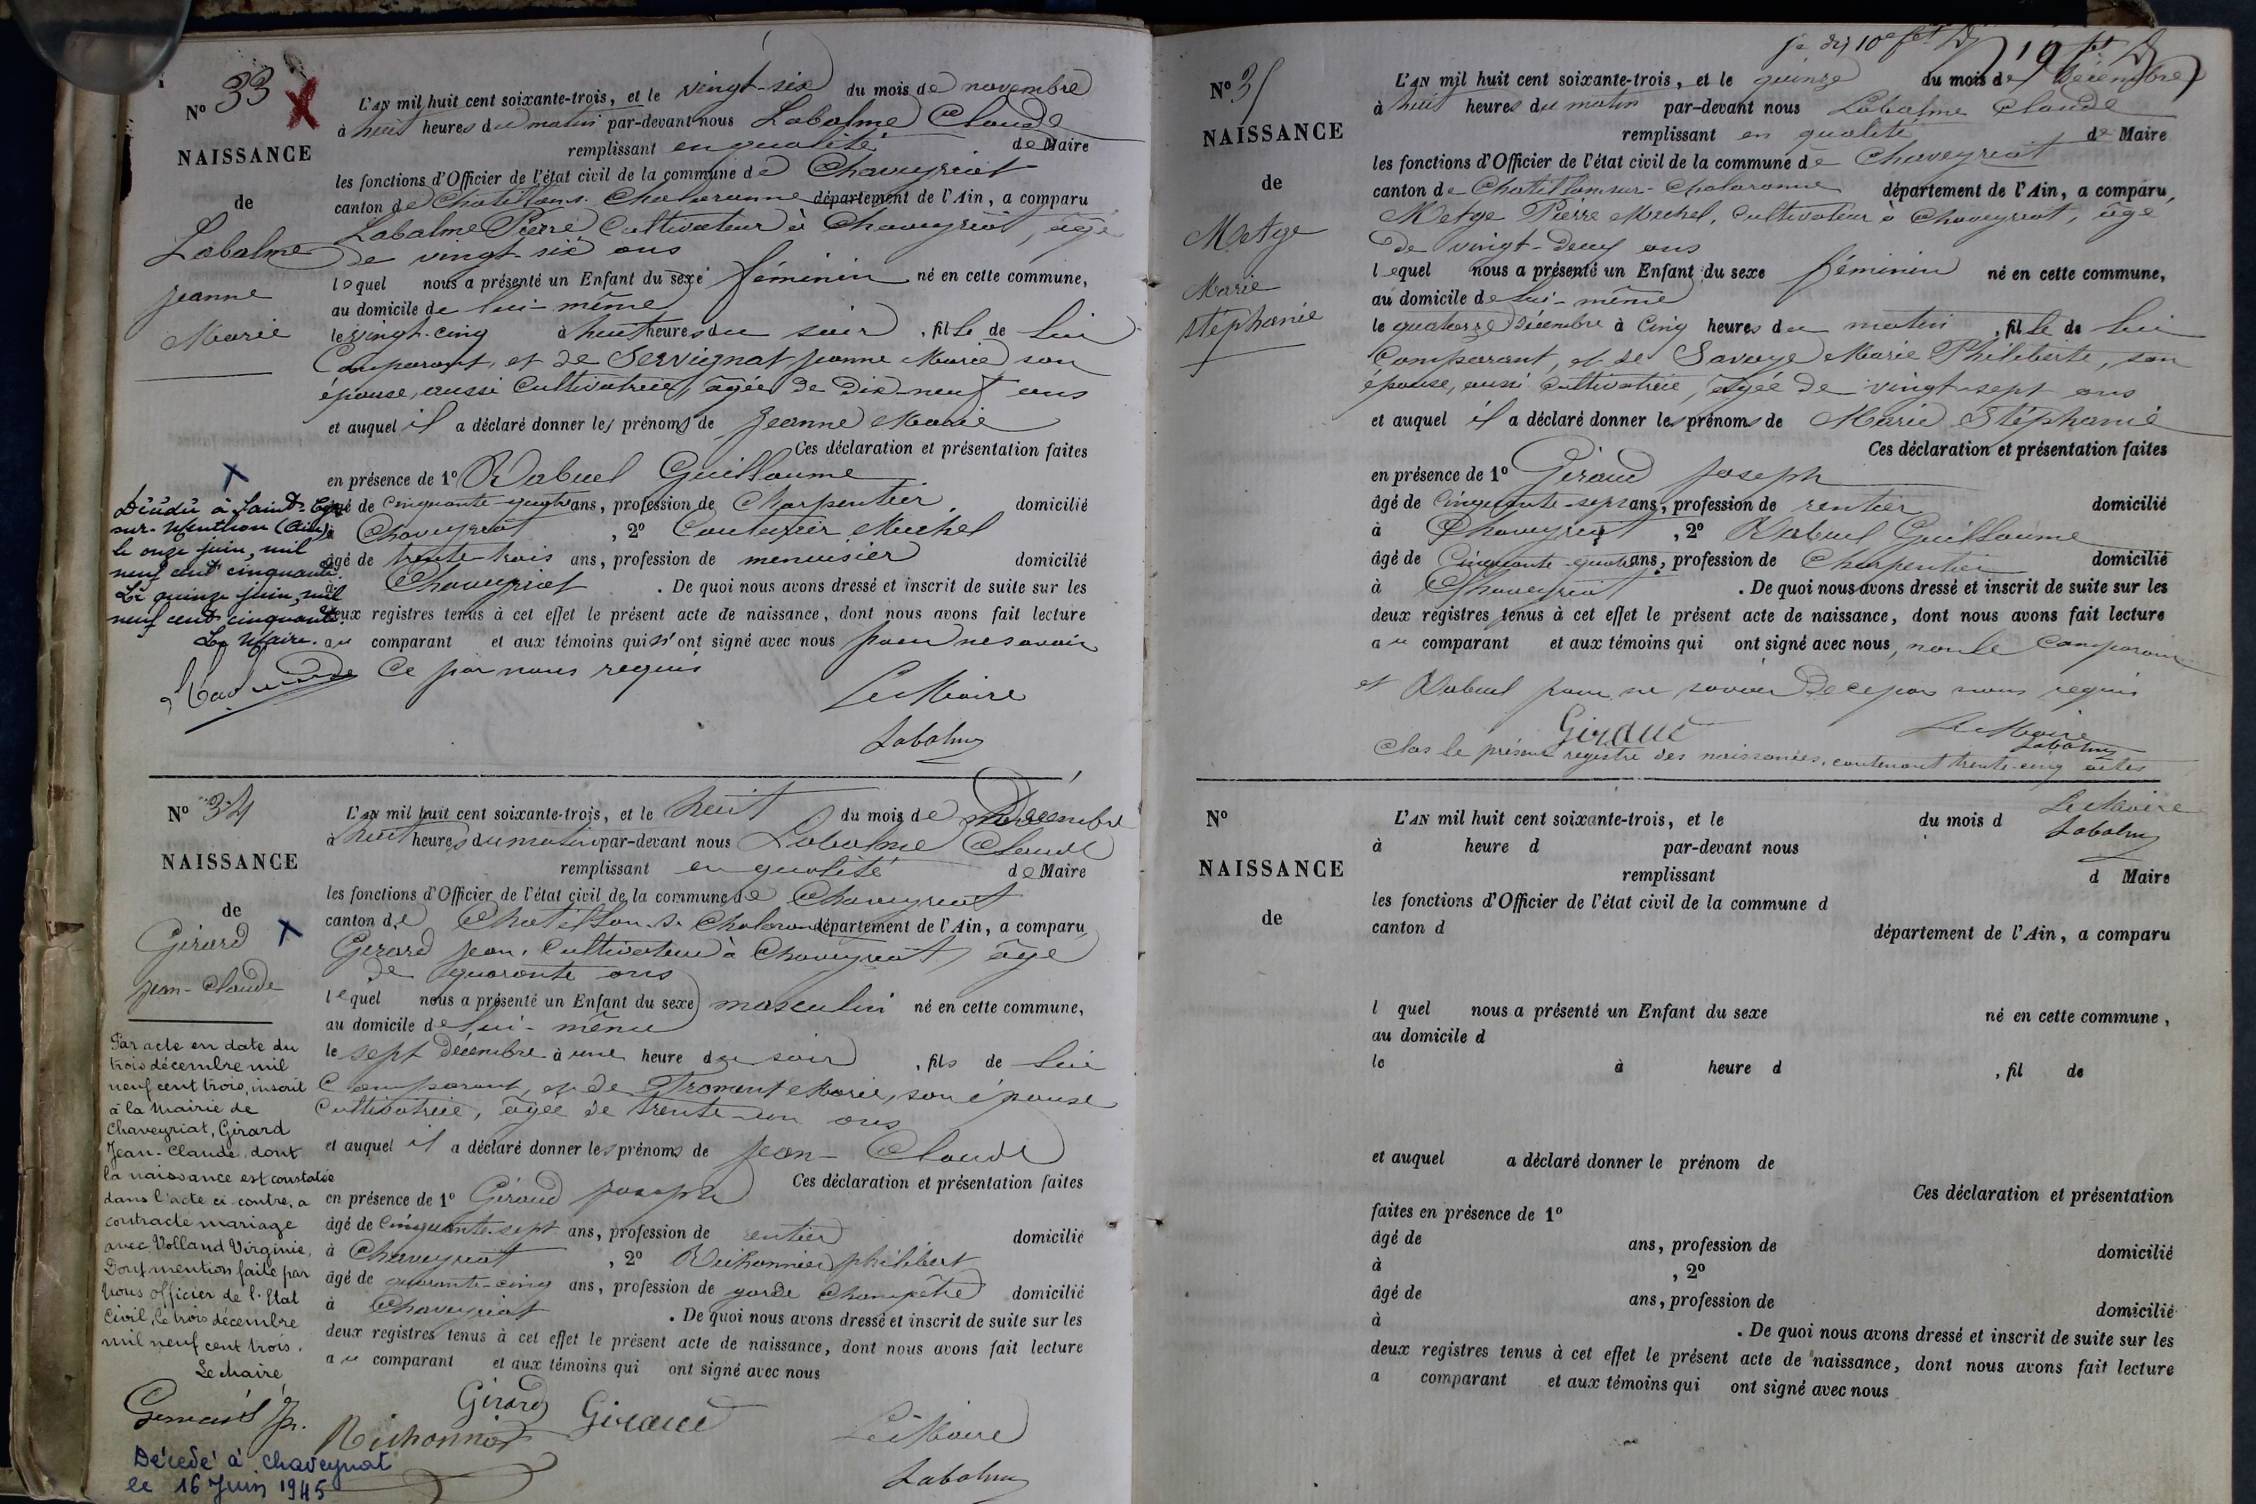 N° 33
NAISSANCE
de
Labalme
Jeanne
Marie
L'AN mil huit cent soixante-trois, et le vingt-six du mois de novembre
à huit heures du matin par-devant nous Labalme Claude
remplissant en qualité de Maire
les fonctions d'Officier de l'état civil de la commune de Chaveyriat
canton de Chatillon s. Chalaronne département de l'Ain, a comparu
Labalme Pierre Cultivateur à Chaveyriat, âgé
de vingt-six ans
lequel nous a présenté un Enfant du sexe féminin né en cette commune,
au domicile de lui-même
le vingt-cinq à huit heures du soir, fille de lui
Comparant, et de Servignat Jeanne Marie son
épouse, aussi Cultivatrice, âgée de dix-neuf ans
et auquel il a déclaré donner les prénoms de Jeanne Marie
Ces déclaration et présentation faites
en présence de 1° Rabuel Guillaume
âgé de cinquante-quatre ans, profession de Charpentier domicilié
à Chaveyriat, 2° Couturier Michel
âgé de trente-trois ans, profession de menuisier domicilié
à Chaveyriat. De quoi nous avons dressé et inscrit de suite sur les
deux registres tenus à cet effet le présent acte de naissance, dont nous avons fait lecture
au comparant et aux témoins qui n'ont signé avec nous pour ne savoir
Ce par nous requis
Le Maire
Labalme
Décédée à Saint-Cyr
sur-Menthon (Ain)
le onze juin, mil
neuf cent cinquante.
Le quinze juin, mil
neuf cent cinquante.
Le Maire.
N° 34
NAISSANCE
de
Girard
Jean-Claude
L'AN mil huit cent soixante-trois, et le huit du mois de Décembre
à huit heures du matin par-devant nous Labalme Claude
remplissant en qualité de Maire
les fonctions d'Officier de l'état civil de la commune de Chaveyriat
canton de Chatillon s. Chalaronne département de l'Ain, a comparu
Girard Jean, Cultivateur à Chaveyriat, âgé
de quarante ans
lequel nous a présenté un Enfant du sexe masculin né en cette commune,
au domicile de lui-même
le sept décembre à une heure du soir, fils de lui
Comparant, et de Froment Marie, son épouse
Cultivatrice, âgée de trente-un ans
et auquel il a déclaré donner les prénoms de Jean-Claude
Ces déclaration et présentation faites
en présence de 1° Giraud Joseph
âgé de cinquante-sept ans, profession de rentier domicilié
à Chaveyriat, 2° Richonnier philibert
âgé de quarante-cinq ans, profession de garde Champêtre domicilié
à Chaveyriat. De quoi nous avons dressé et inscrit de suite sur les
deux registres tenus à cet effet le présent acte de naissance, dont nous avons fait lecture
au comparant et aux témoins qui ont signé avec nous
Girard Giraud
Richonnier
Le Maire
Labalme
Par acte en date du
trois décembre mil
neuf cent trois, inscrit
à la Mairie de
Chaveyriat, Girard
Jean-Claude, dont
la naissance est constatée
dans l'acte ci-contre, a
contracté mariage
avec Volland Virginie,
Dont mention faite par
Nous officier de l'Etat
Civil, le trois décembre
mil neuf cent trois.
Le Maire
Décédé à Chaveyriat
le 16 Juin 1945
N° 35
NAISSANCE
de
Metge
Marie
Stéphanie
L'AN mil huit cent soixante-trois, et le quinze du mois de Décembre
à huit heures du matin par-devant nous Labalme Claude
remplissant en qualité de Maire
les fonctions d'Officier de l'état civil de la commune de Chaveyriat
canton de Chatillon-sur-Chalaronne département de l'Ain, a comparu,
Metge Pierre Michel, Cultivateur à Chaveyriat, âgé
de vingt-deux ans
lequel nous a présenté un Enfant du sexe féminin né en cette commune,
au domicile de lui-même
le quatorze Décembre à cinq heures du matin, fille de lui
Comparant, et de Savoye Marie Philiberte, son
épouse, aussi Cultivatrice, âgée de vingt-sept ans
et auquel il a déclaré donner les prénoms de Marie Stéphanie
Ces déclaration et présentation faites
en présence de 1° Giraud Joseph
âgé de cinquante-sept ans, profession de rentier domicilié
à Chaveyriat, 2° Rabuel Guillaume
âgé de Cinquante-quatre ans, profession de Charpentier domicilié
à Chaveyriat. De quoi nous avons dressé et inscrit de suite sur les
deux registres tenus à cet effet le présent acte de naissance, dont nous avons fait lecture
au comparant et aux témoins qui ont signé avec nous, non le Comparant
et Rabuel pour ne savoir de ce par nous requis
Giraud
Le Maire
Labalme
Clos le présent registre des naissances, contenant trente-cinq actes
Le Maire
Labalme
N°
NAISSANCE
de
L'AN mil huit cent soixante-trois, et le du mois d
à heure d par-devant nous
remplissant d Maire
les fonctions d'Officier de l'état civil de la commune d
canton d département de l'Ain, a comparu
l quel nous a présenté un Enfant du sexe né en cette commune,
au domicile d
le à heure d , fil de
et auquel a déclaré donner le prénom de
Ces déclaration et présentation
faites en présence de 1°
âgé de ans, profession de domicilié
à , 2°
âgé de ans, profession de domicilié
à . De quoi nous avons dressé et inscrit de suite sur les
deux registres tenus à cet effet le présent acte de naissance, dont nous avons fait lecture
a comparant et aux témoins qui ont signé avec nous